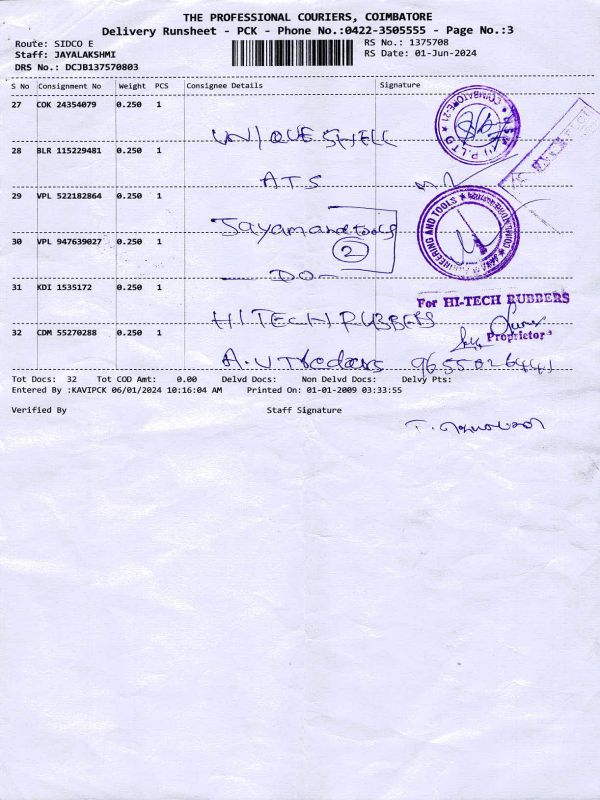 THE PROFESSIONAL COURIERS, COIMBATORE
Delivery Runsheet - PCK - Phone No.:0422-3505555 - Page No.:3
Route: SIDCO E RS No.: 1375708
Staff: JAYALAKSHMI RS Date: 01-Jun-2024
DRS No.: DCJB137570803
S No Consignment No Weight PCS Consignee Details Signature
27 COK 24354079 0.250 1
UNIQUE SHELL
28 BLR 115229481 0.250 1
ATS
29 VPL 522182864 0.250 1
Jayam and tools
30 VPL 947639027 0.250 1
2
DO
31 KDI 1535172 0.250 1
For HI-TECH RUBBERS
HITECH RUBBERS
32 CDM 55270288 0.250 1
Proprietor
A.V Traders 9655026441
Tot Docs: 32 Tot COD Amt: 0.00 Delvd Docs: Non Delvd Docs: Delvy Pts:
Entered By :KAVIPCK 06/01/2024 10:16:04 AM Printed On: 01-01-2009 03:33:55
Verified By Staff Signature